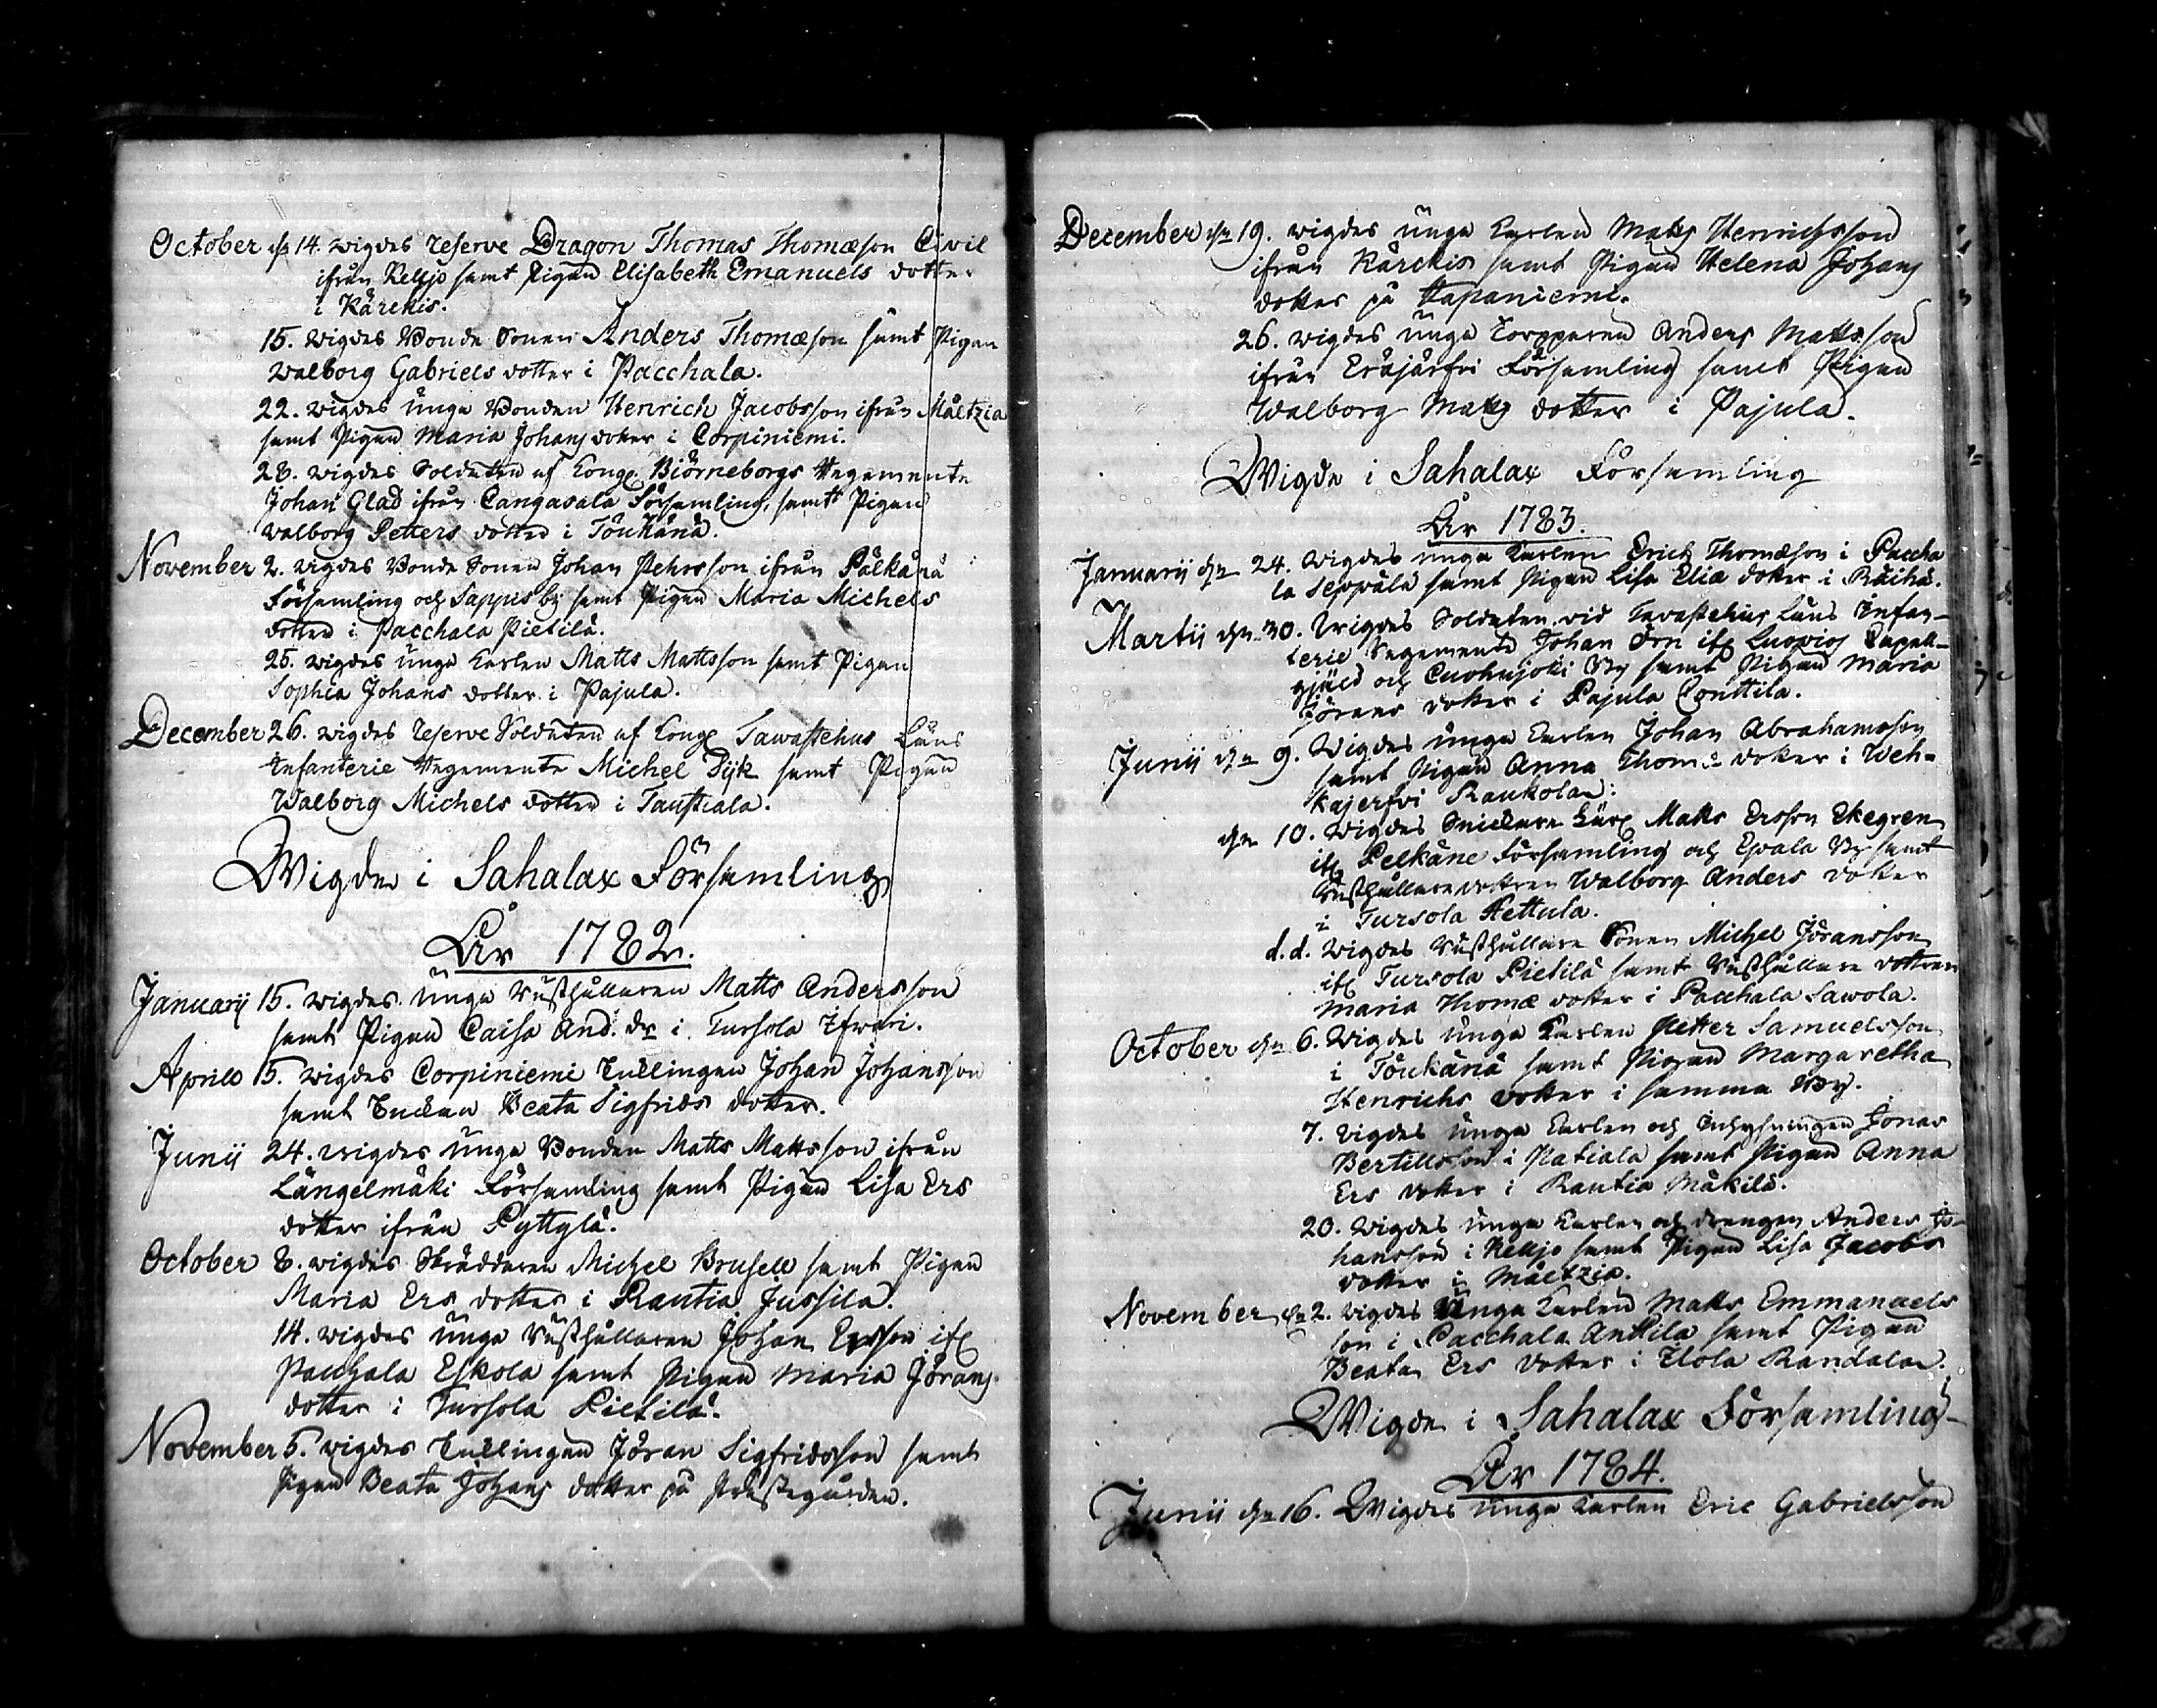 October d. 14. wigdes reserve Dragon Thomas Thomæson Civil
ifrån Kelljo samt Pigan Elisabeth Emanuels dotter
i Kärckis.
15. wigdes Bonde Sonen Anders Thomæson samt Pigan
Walborg Gabriels dotter i Pacchala.
22. wigdes Unga Bonden Henrich Jacobsson ifrån Mältzia
samt Pigan Maria Johans dotter i Corpiniemi.
28. wigdes Soldaten af Kongl Biörneborgs Regemente
Johan Glad ifrån Cangasala Församling, samt Pigan
Walborg Petters dotter i Töukänä.
November 2. wigdes Bonde Sonen Johan Pehrsson ifrån Pälkänä
Församling och Sappis by samt Pigan Maria Michels
dotter i Pacchala Pietilä.
25. wigdes Unga Karlen Matts Mattsson samt Pigan
Sophia Johans dotter i Pajula.
December 26. wigdes reserve Soldaten af Kongl Tawastehus Läns
Infanterie Regemente Michel Dÿk samt Pigan
Walborg Michels dotter i Taustiala.
Wigde i Sahalax Församling
År 1782.
Januarij 15. wigdes Unga Rusthållaren Matts Andersson
samt Pigan Caisa And. dr i Tursola
Aprill 5. wigdes Corpiniemi Enklingen Johan Johansson
samt Enckan Beata Sigfrids dotter.
Junij 24. wigdes Unga Bonden Matts Mattsson ifrån
Längelmäki Församling samt Pigan Lisa Ers
dotter ifrån Pyttylä.
October 8. wigdes Skräddaren Michel Brusell samt Pigan
Maria Ers dotter i Rautia Jussila.
14. wigdes Unga Rusthållaren Johan Ersson ifr
Pacchala Eskola samt Pigan Maria Jörans
dotter i Tursola Pietilä.
November 5. wigdes Enklingen Jöran Sigfridsson samt
Pigan Beata Johans dotter på Prestegården.
December d. 19. wigdes Unga Karlen Matts Henrichsson
ifrån Kärckis samt Pigan Helena Johans
dotter på Hapaniemi.
26. wigdes Unga Torpparen Anders Mattsson
ifrån Eräjärfvi Församling samt Pigan
Walborg Matts dotter i Pajula.
Wigde i Sahalax Församling
År 1783.
Januarij d. 24. Wigdes unga Karlen Erich Thomæson i Paccha
la Seppälä samt Pigan Lisa Eliæ dotter i Räihä.
Martij d. 30. Wigdes Soldaten vid Tavastehus Läns Infan-
terie Regemente Johan Örn ifr Luopiois Capell-
gjäld och Cuohujoki By samt Pigan Maria
Jörans dotter i Pajula Conttila.
Junij d. 9. Wigdes Unga Karlen Johan Abrahamsson
samt Pigan Anna Thomæ dotter i Weh-
kajerfvi Raukola.
d. 10. Wigdes Snickare Lärl Matts Ersson Ekegren
ifr Pelkäne Församling och Epala By samt
Rusthållaredottren Walborg Anders dotter
i Tursola Pettula.
d. d. Wigdes Rusthållare Sonen Michel Jöransson
ifr Tursola Pietilä samt Rusthållare dottren
Maria Thomæ dotter i Pacchala Sawola.
October d. 6. Wigdes Unga Karlen Petter Samuelsson
i Töukänä samt Pigan Margaretha
Henrichs dotter i samma By.
7. Wigdes Unga Karlen och Inhysningen Jonas
Bertillsson i Patiala samt Pigan Anna
Ers dotter i Rautia Mäkilä.
20. Wigdes Unga Karlen och drengen Anders Jo-
hansson i Kelljo samt Pigan Lisa Jacobs
dotter i Mältzia.
November d. 2. wigdes Unga Karlen Matts Emmanuels
son i Pacchala Anttila samt Pigan
Beata Ers dotter i Ilola Randala.
Wigde i Sahalax Församling
År 1784.
Junij d. 16. Wigdes unga Karlen Eric Gabrielsson